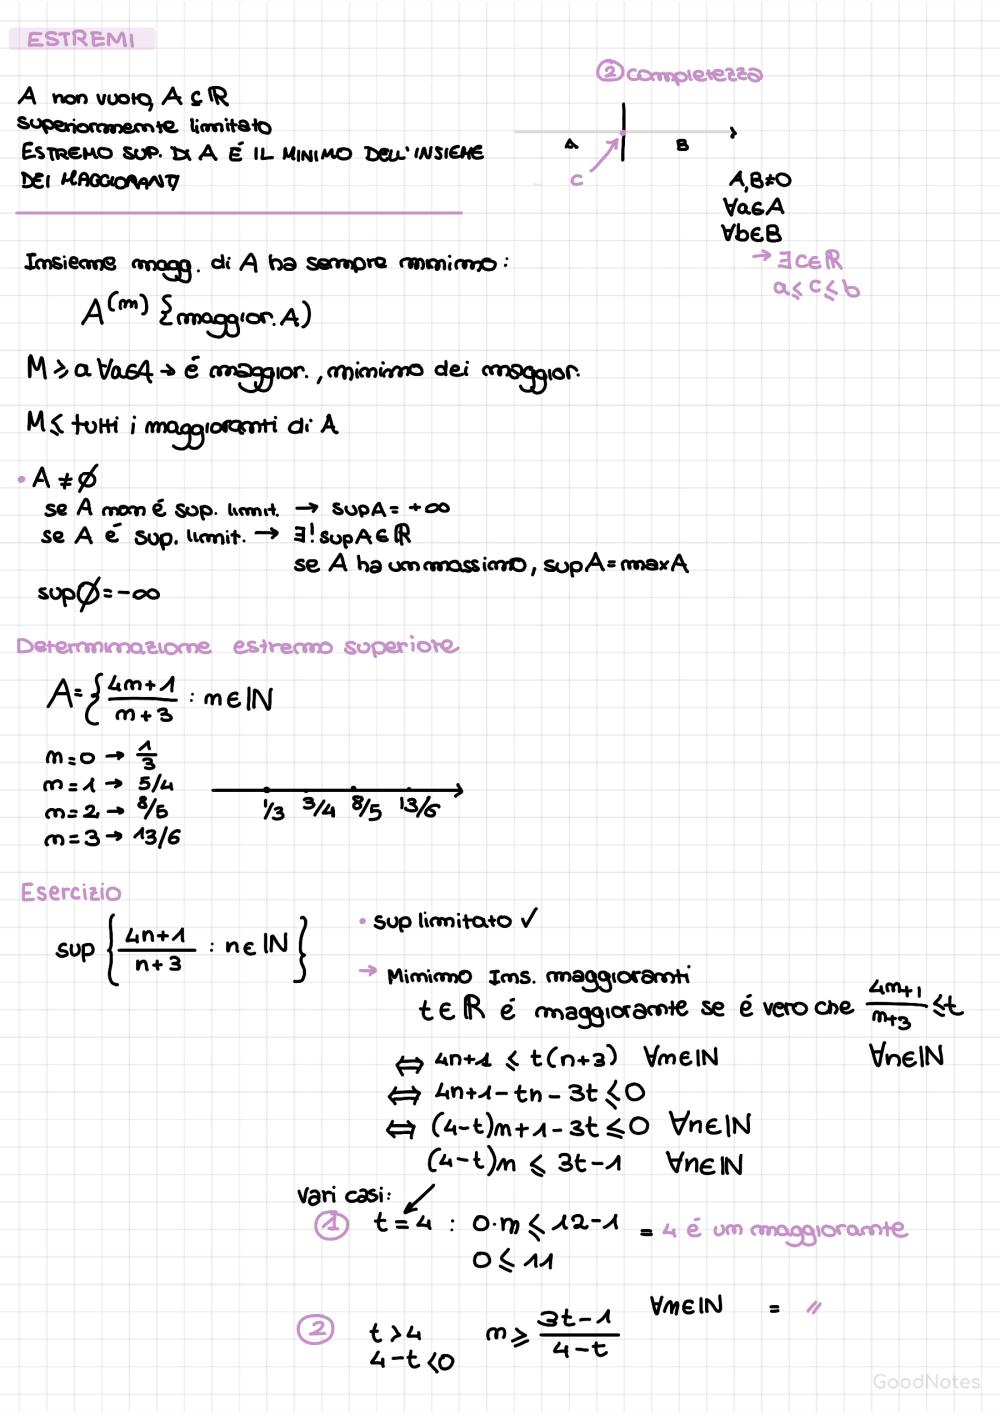 ESTREMI
② completezza
A non vuoto, A ⊆ ℝ
superiormente limitato
ESTREMO SUP. DI A É IL MINIMO DELL'INSIEME
DEI MAGGIORANTI
A B
c
A,B≠0
∀a∈A
∀b∈B
→ ∃c∈ℝ
a⩽c⩽b
Insieme magg. di A ha sempre minimo:
A^(m) {maggior. A)
M ⩾ a ∀a∈A → é maggior., minimo dei maggior.
M ⩽ tutti i maggioranti di A
• A ≠ ∅
se A non é sup. limit. → supA = +∞
se A é sup. limit. → ∃! supA ∈ ℝ
se A ha un massimo, sup A = max A
sup∅ = -∞
Determinazione estremo superiore
A = { (4n+1)/(n+3) : n∈ℕ
n=0 → 1/3
n=1 → 5/4
n=2 → 8/5
n=3 → 13/6
1/3 3/4 8/5 13/6
Esercizio
sup { (4n+1)/(n+3) : n∈ℕ }
• sup limitato ✓
→ Minimo Ins. maggioranti
t∈ℝ é maggiorante se é vero che (4n+1)/(n+3) ⩽ t
∀n∈ℕ
⇔ 4n+1 ⩽ t(n+3) ∀n∈ℕ
⇔ 4n+1-tn-3t ⩽ 0
⇔ (4-t)n+1-3t ⩽ 0 ∀n∈ℕ
(4-t)n ⩽ 3t-1 ∀n∈ℕ
Vari casi:
① t=4 : 0·n ⩽ 12-1 = 4 é un maggiorante
0 ⩽ 11
② t>4 n ⩾ (3t-1)/(4-t) ∀n∈ℕ = //
4-t<0
GoodNotes